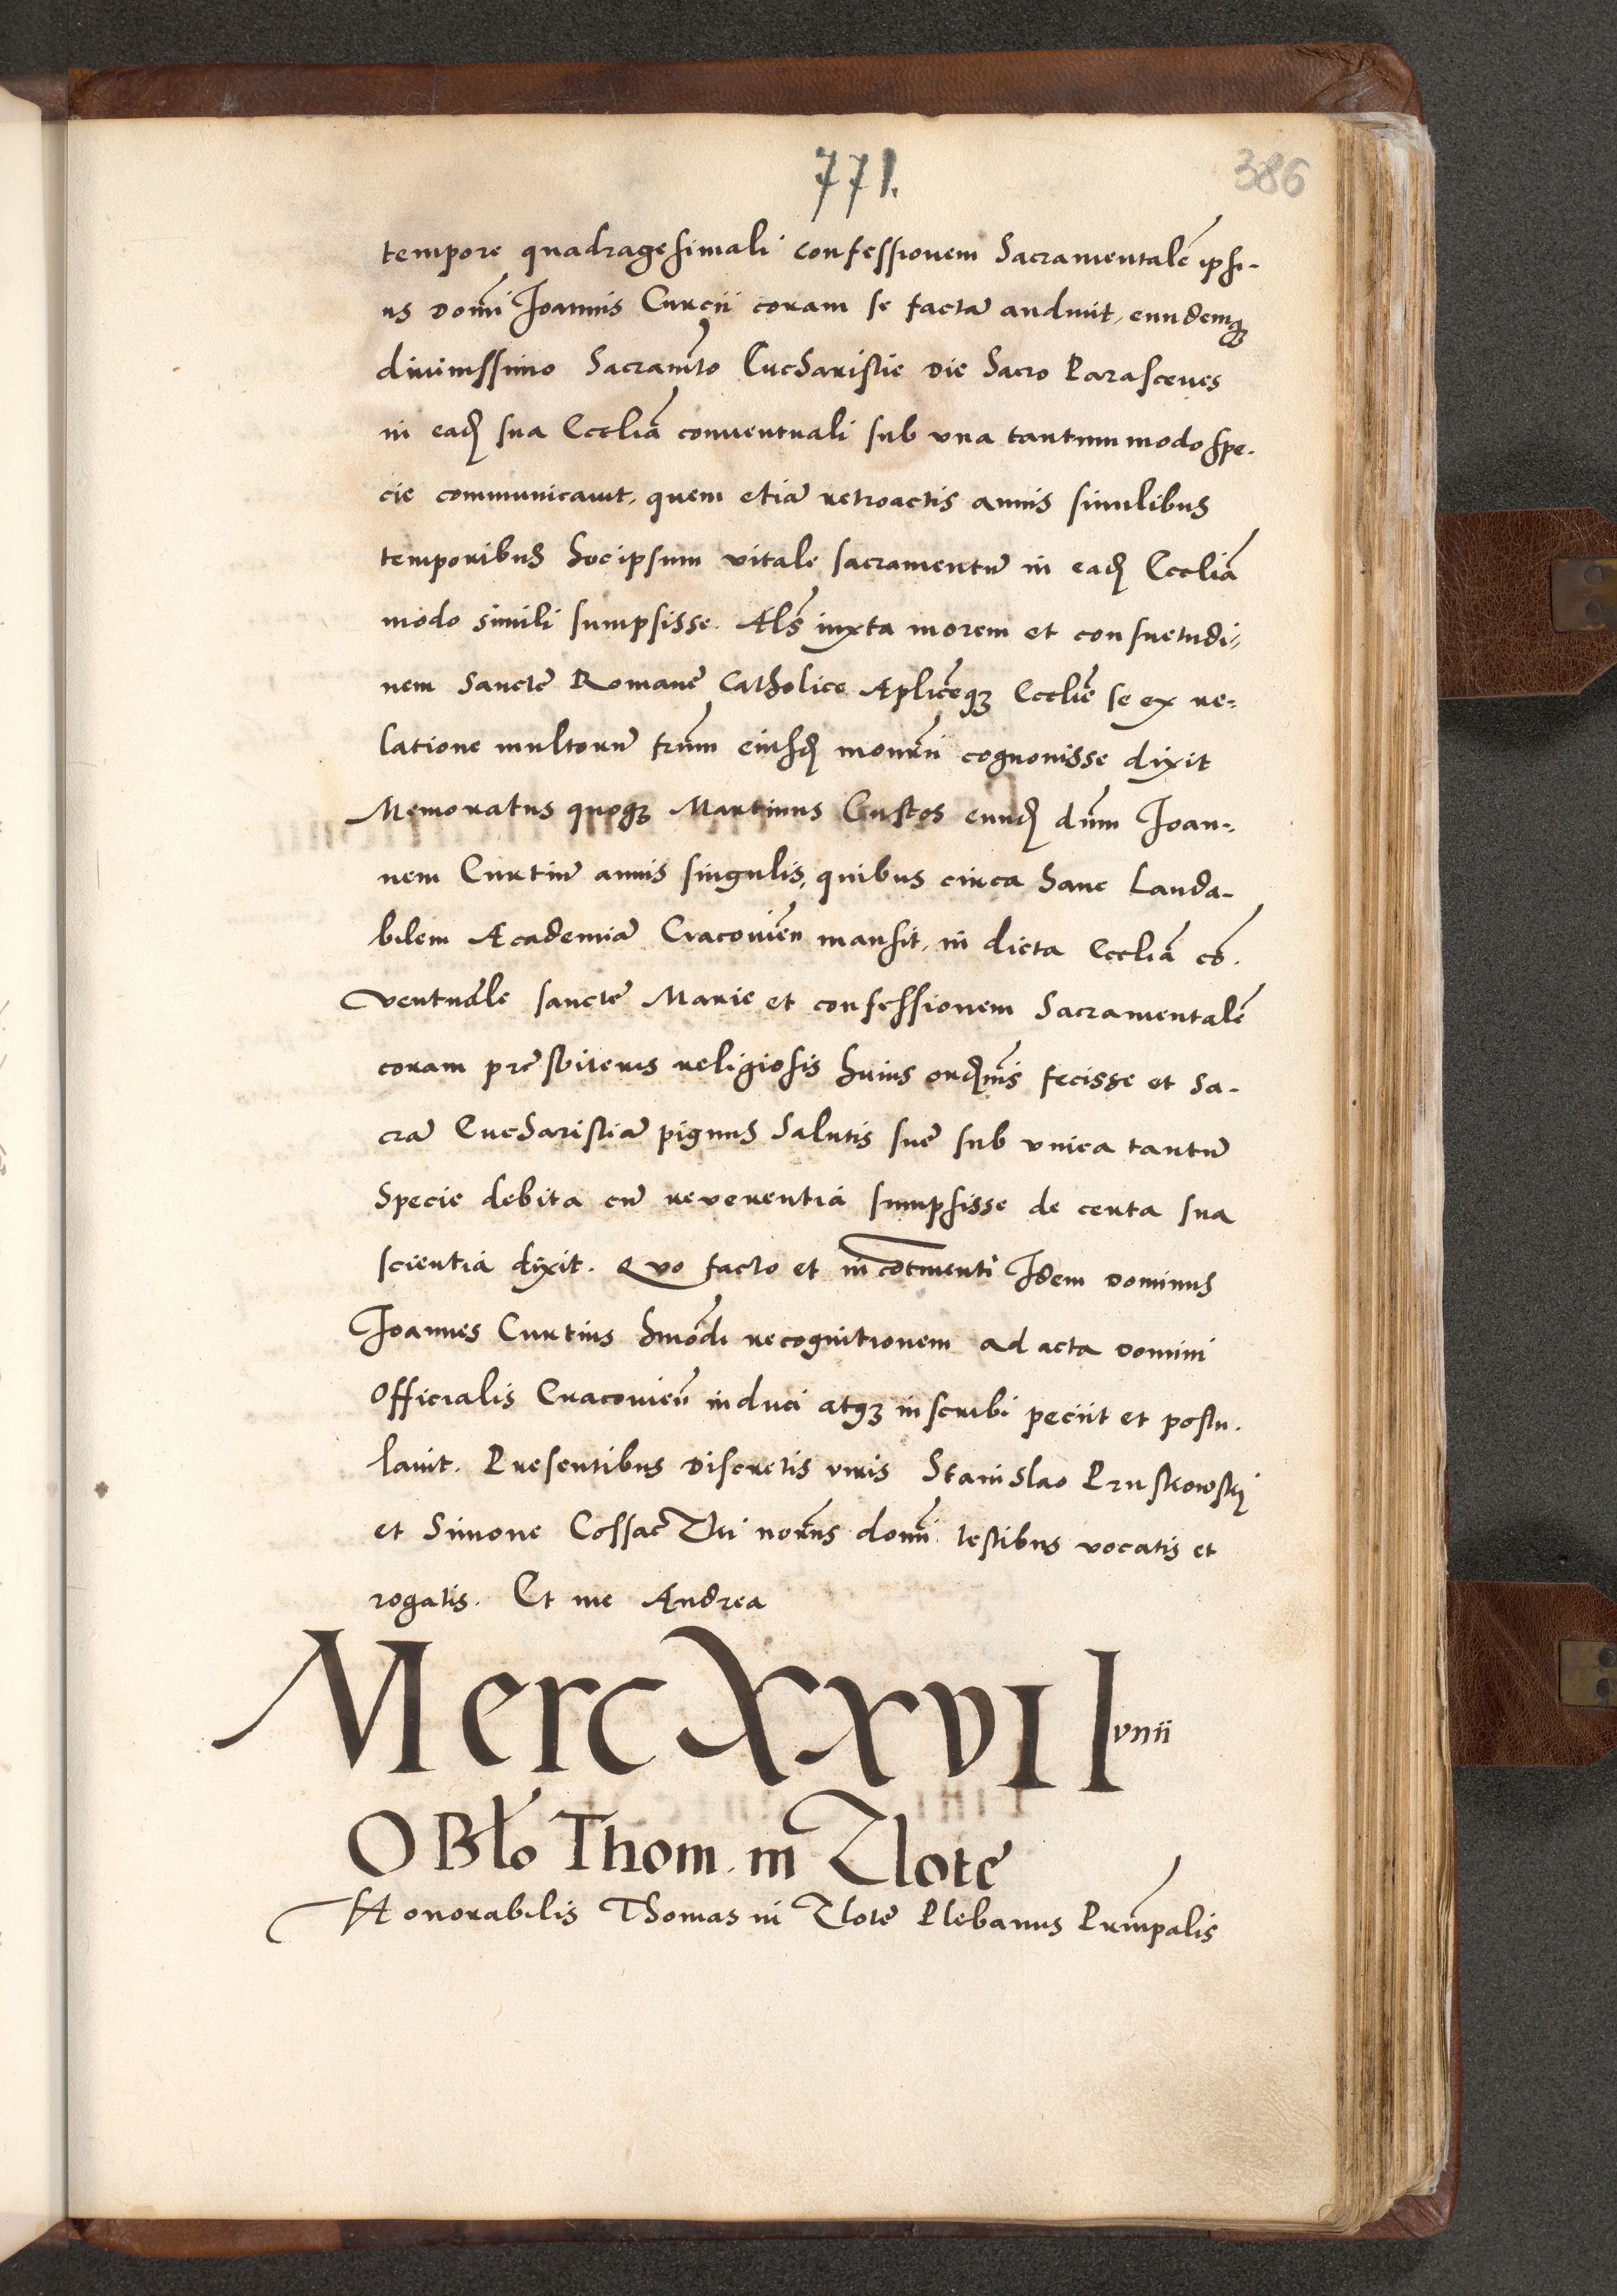 771.
386
tempore quadragesimali confessionem Sacramentalē ipsi-
us domī Ioannis Curcii coram se factā audiuit, eundemq3
diuinissimo Sacramēto Eucharistie die Sacro Parasceues
in eadē sua Eccliā conuentuali sub vna tantummodo spe-
cie communicauit, quem etiā retroactis annis similibus
temporibus hoc ipsum vitale sacramentū in eadē Eccliā
modo simili sumpsisse. Als̄ iuxta morem et consuetudi-
nem Sancte Romane Catholice Aplīceq3 Ecclīe se ex re-
latione multorū frūm eiusdē monrīi cognouisse dixit
Memoratus quoq3 Martinus Custos eundē dnūm Ioan-
nem Curtiū annis singulis, quibus circa hanc Lauda-
bilem Academiā Cracouien̄ mansit, in dicta Eccliā cō-
uentuale sancte Marie et confessionem Sacramentalē
coram presbiteris religiosis huius ordīnis fecisse et Sa-
crā Eucharistiā pignus Salutis sue sub vnica tantū
Specie debita cū reuerentia sumpsisse de certa sua
scientia dixit. Quo facto et in cōtinenti Idem dominus
Ioannes Curtius hmōdi recognitionem ad acta domini
Officialis Cracouien̄ induci atq3 inscribi peciit et postu-
lauit. Presentibus discretis viris Stanislao Pruskowskj
et Simone Cossac Thi norīns domī testibus vocatis et
rogatis. Et me Andrea
Merc XXVII Iunii
OBłō Thom. in Zlote
Honorabilis Thomas in Zlote Plebanus Prīnpalis